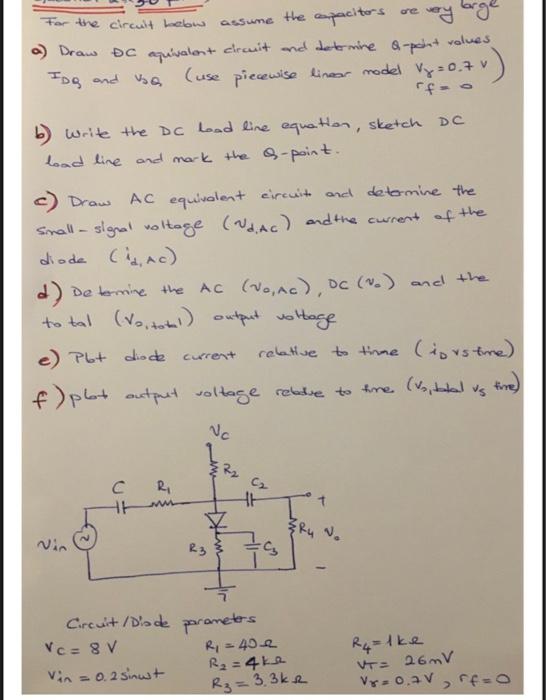 For the circuit below assume the capacitors are very large
a) Draw DC equivalent circuit and determine Q-point values
IDQ and VDQ (use piecewise linear model Vγ=0.7 V
rf=0)
b) Write the DC load line equation, sketch DC
load line and mark the Q-point.
c) Draw AC equivalent circuit and determine the
small-signal voltage (vd,AC) and the current of the
diode (id,AC)
d) Determine the AC (vo,AC), DC (Vo) and the
total (vo,total) output voltage
e) Plot diode current relative to time (iD vs time)
f) plot output voltage relative to time (vo,total vs time)
Vc
R2
C
R1
C2
+
Vin
R3
C3
R4
Vo
-
Circuit/Diode parameters
Vc = 8 V
R1 = 40 Ω
R4 = 1 kΩ
R2 = 4 kΩ
VT = 26mV
Vin = 0.2 sinwt
R3 = 3.3 kΩ
Vγ = 0.7V, rf=0